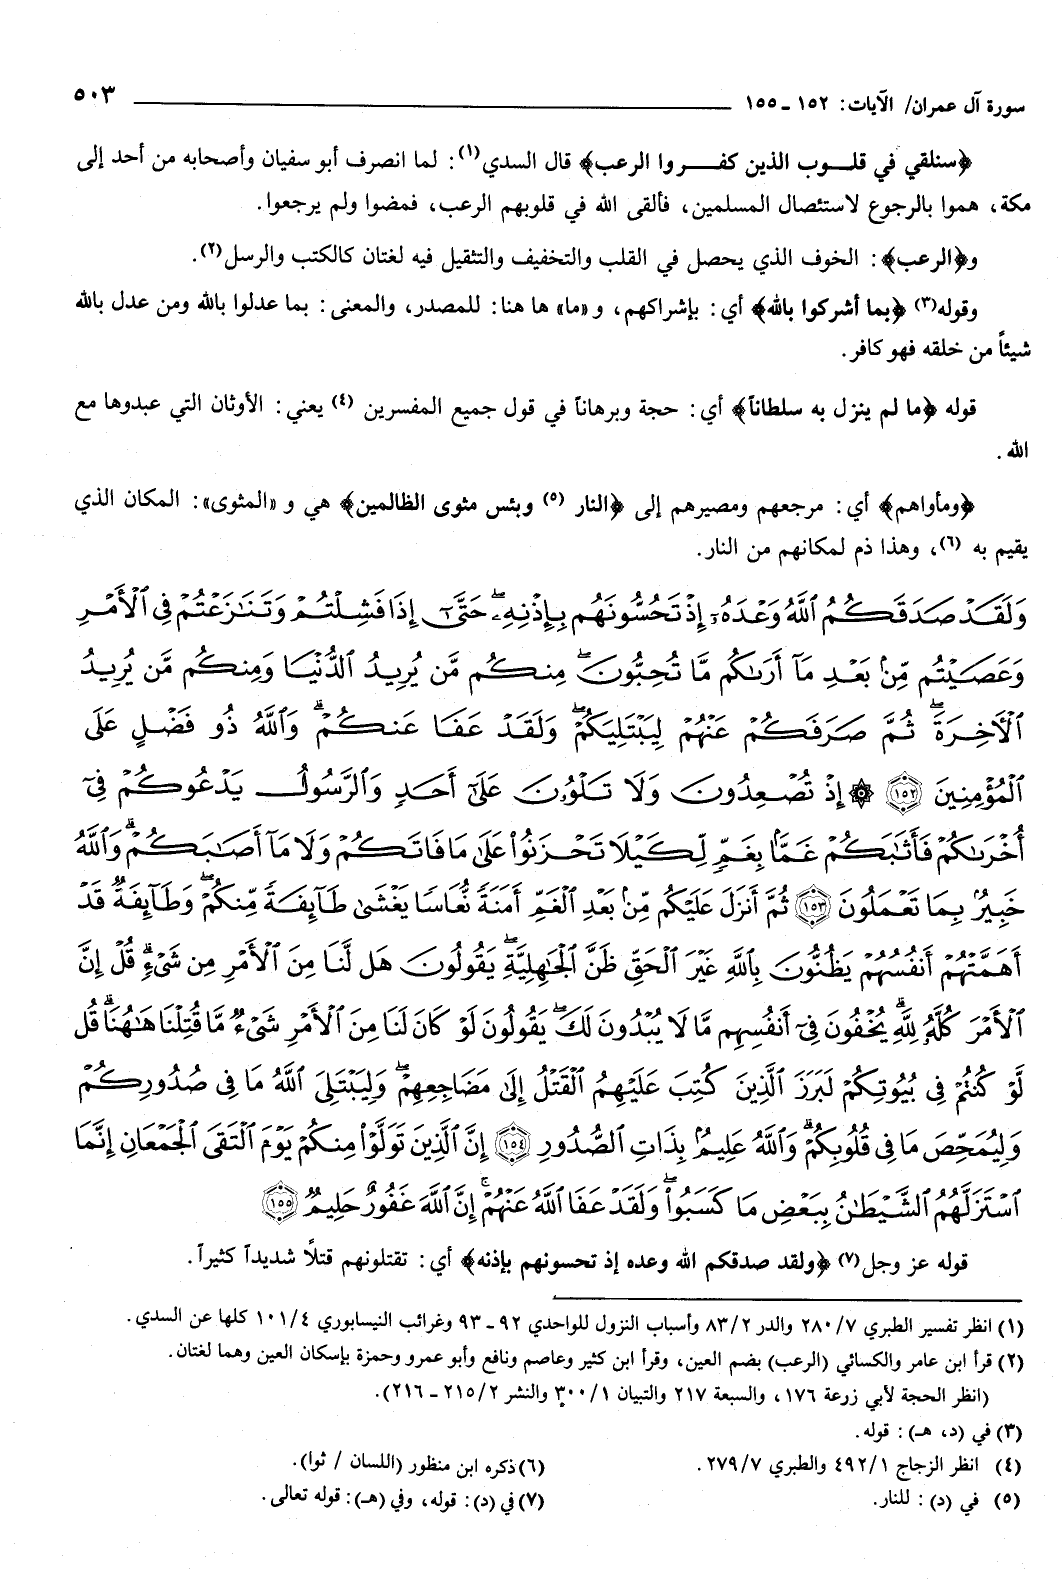 سورة آل عمران/ الآيات: ١٥٢ ـ ١٥٥ ٥٠٣
﴿سنلقي في قلوب الذين كفروا الرعب﴾ قال السدي(١): لما انصرف أبو سفيان وأصحابه من أحد إلى
مكة، هموا بالرجوع لاستئصال المسلمين، فألقى الله في قلوبهم الرعب، فمضوا ولم يرجعوا.
و﴿الرعب﴾: الخوف الذي يحصل في القلب والتخفيف والتثقيل فيه لغتان كالكتب والرسل(٢).
وقوله(٣) ﴿بما أشركوا بالله﴾ أي: بإشراكهم، و «ما» ها هنا: للمصدر، والمعنى: بما عدلوا بالله ومن عدل بالله
شيئاً من خلقه فهو كافر.
قوله ﴿ما لم ينزل به سلطاناً﴾ أي: حجة وبرهاناً في قول جميع المفسرين (٤) يعني: الأوثان التي عبدوها مع
الله.
﴿ومأواهم﴾ أي: مرجعهم ومصيرهم إلى ﴿النار (٥) وبئس مثوى الظالمين﴾ هي و «المثوى»: المكان الذي
يقيم به (٦)، وهذا ذم لمكانهم من النار.
وَلَقَدْ صَدَقَكُمُ ٱللَّهُ وَعْدَهُۥٓ إِذْ تَحُسُّونَهُم بِإِذْنِهِۦۖ حَتَّىٰٓ إِذَا فَشِلْتُمْ وَتَنَٰزَعْتُمْ فِى ٱلْأَمْرِ
وَعَصَيْتُم مِّنۢ بَعْدِ مَآ أَرَىٰكُم مَّا تُحِبُّونَۚ مِنكُم مَّن يُرِيدُ ٱلدُّنْيَا وَمِنكُم مَّن يُرِيدُ
ٱلْءَاخِرَةَۚ ثُمَّ صَرَفَكُمْ عَنْهُمْ لِيَبْتَلِيَكُمْۖ وَلَقَدْ عَفَا عَنكُمْۗ وَٱللَّهُ ذُو فَضْلٍ عَلَى
ٱلْمُؤْمِنِينَ ﴿١٥٢﴾ ۞ إِذْ تُصْعِدُونَ وَلَا تَلْوُۥنَ عَلَىٰٓ أَحَدٍ وَٱلرَّسُولُ يَدْعُوكُمْ فِىٓ
أُخْرَىٰكُمْ فَأَثَٰبَكُمْ غَمًّۢا بِغَمٍّ لِّكَيْلَا تَحْزَنُوا۟ عَلَىٰ مَا فَاتَكُمْ وَلَا مَآ أَصَٰبَكُمْۗ وَٱللَّهُ
خَبِيرٌۢ بِمَا تَعْمَلُونَ ﴿١٥٣﴾ ثُمَّ أَنزَلَ عَلَيْكُم مِّنۢ بَعْدِ ٱلْغَمِّ أَمَنَةً نُّعَاسًا يَغْشَىٰ طَآئِفَةً مِّنكُمْۖ وَطَآئِفَةٌ قَدْ
أَهَمَّتْهُمْ أَنفُسُهُمْ يَظُنُّونَ بِٱللَّهِ غَيْرَ ٱلْحَقِّ ظَنَّ ٱلْجَٰهِلِيَّةِۖ يَقُولُونَ هَل لَّنَا مِنَ ٱلْأَمْرِ مِن شَىْءٍۗ قُلْ إِنَّ
ٱلْأَمْرَ كُلَّهُۥ لِلَّهِۗ يُخْفُونَ فِىٓ أَنفُسِهِم مَّا لَا يُبْدُونَ لَكَۖ يَقُولُونَ لَوْ كَانَ لَنَا مِنَ ٱلْأَمْرِ شَىْءٌ مَّا قُتِلْنَا هَٰهُنَاۗ قُل
لَّوْ كُنتُمْ فِى بُيُوتِكُمْ لَبَرَزَ ٱلَّذِينَ كُتِبَ عَلَيْهِمُ ٱلْقَتْلُ إِلَىٰ مَضَاجِعِهِمْۖ وَلِيَبْتَلِىَ ٱللَّهُ مَا فِى صُدُورِكُمْ
وَلِيُمَحِّصَ مَا فِى قُلُوبِكُمْۗ وَٱللَّهُ عَلِيمٌۢ بِذَاتِ ٱلصُّدُورِ ﴿١٥٤﴾ إِنَّ ٱلَّذِينَ تَوَلَّوْا۟ مِنكُمْ يَوْمَ ٱلْتَقَى ٱلْجَمْعَانِ إِنَّمَا
ٱسْتَزَلَّهُمُ ٱلشَّيْطَٰنُ بِبَعْضِ مَا كَسَبُوا۟ۖ وَلَقَدْ عَفَا ٱللَّهُ عَنْهُمْۗ إِنَّ ٱللَّهَ غَفُورٌ حَلِيمٌ ﴿١٥٥﴾
قوله عز وجل(٧) ﴿ولقد صدقكم الله وعده إذ تحسونهم بإذنه﴾ أي: تقتلونهم قتلاً شديداً كثيراً.
(١) انظر تفسير الطبري ٢٨٠/٧ والدر ٨٣/٢ وأسباب النزول للواحدي ٩٢ ـ ٩٣ وغرائب النيسابوري ١٠١/٤ كلها عن السدي.
(٢) قرأ ابن عامر والكسائي (الرعب) بضم العين، وقرأ ابن كثير وعاصم ونافع وأبو عمرو وحمزة بإسكان العين وهما لغتان.
(انظر الحجة لأبي زرعة ١٧٦، والسبعة ٢١٧ والتبيان ٣٠٠/١ والنشر ٢١٥/٢ ـ ٢١٦).
(٣) في (د، هـ): قوله.
(٤) انظر الزجاج ٤٩٢/١ والطبري ٢٧٩/٧.
(٥) في (د): للنار.
(٦) ذكره ابن منظور (اللسان / ثوا).
(٧) في (د): قوله، وفي (هـ): قوله تعالى.